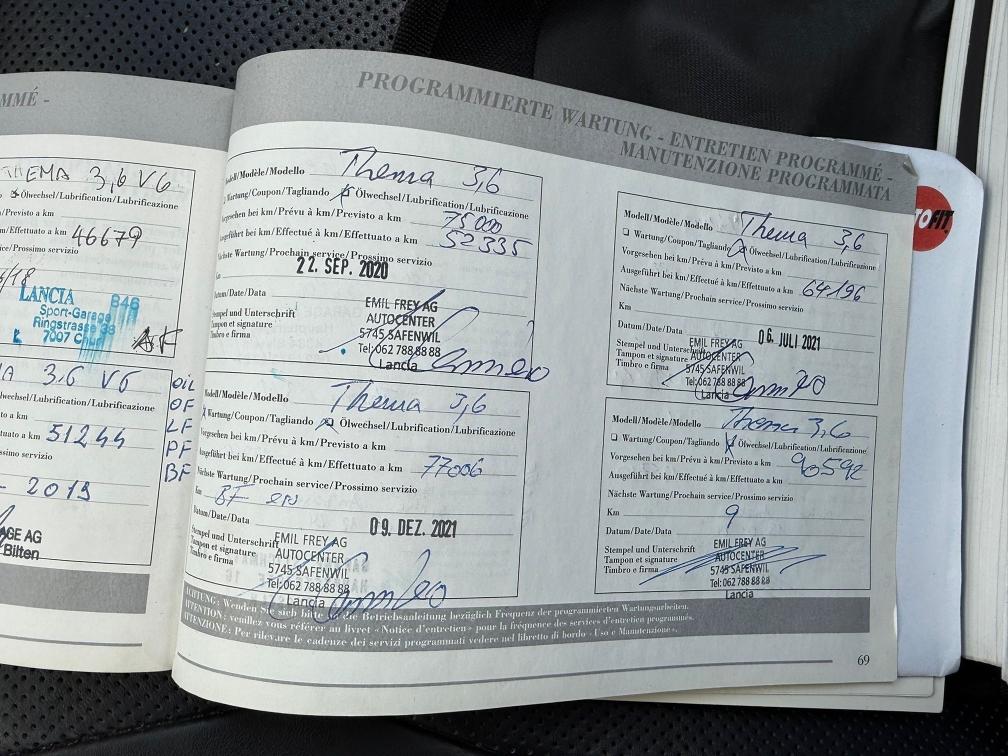 MMÉ -
THEMA 3,6 V6
Ölwechsel/Lubrification/Lubrificazione
/Previsto a km
/Effettuato a km 46679
ice/Prossimo servizio
/18
LANCIA B46
Sport-Garage
Ringstrasse 33
7007 Chur
MA 3.6 V6
lwechsel/Lubrification/Lubrificazione
to a km
tuato a km 51244
ssimo servizio
- 2019
AGE AG
Bilten
OIL
OF
LF
PF
BF
PROGRAMMIERTE WARTUNG - ENTRETIEN PROGRAMMÉ -
MANUTENZIONE PROGRAMMATA
Modell/Modèle/Modello Thema 3,6
Wartung/Coupon/Tagliando Ölwechsel/Lubrification/Lubrificazione
Vorgesehen bei km/Prévu à km/Previsto a km 75000
Ausgeführt bei km/Effectué à km/Effettuato a km 52335
Nächste Wartung/Prochain service/Prossimo servizio
Km
22. SEP. 2020
Datum/Date/Data
Stempel und Unterschrift
Tampon et signature
Timbro e firma
EMIL FREY AG
AUTOCENTER
5745 SAFENWIL
Tel:062 788 88 88
Lancia
Modell/Modèle/Modello Thema 3,6
Wartung/Coupon/Tagliando Ölwechsel/Lubrification/Lubrificazione
Vorgesehen bei km/Prévu à km/Previsto a km
Ausgeführt bei km/Effectué à km/Effettuato a km 77006
Nächste Wartung/Prochain service/Prossimo servizio
Km BF
Datum/Date/Data 09. DEZ. 2021
Stempel und Unterschrift
Tampon et signature
Timbro e firma
EMIL FREY AG
AUTOCENTER
5745 SAFENWIL
Tel:062 788 88 88
Lancia
Modell/Modèle/Modello Thema 3,6
Wartung/Coupon/Tagliando Ölwechsel/Lubrification/Lubrificazione
Vorgesehen bei km/Prévu à km/Previsto a km
Ausgeführt bei km/Effectué à km/Effettuato a km 64196
Nächste Wartung/Prochain service/Prossimo servizio
Km
Datum/Date/Data 06. JULI 2021
Stempel und Unterschrift
Tampon et signature
Timbro e firma
EMIL FREY AG
AUTOCENTER
5745 SAFENWIL
Tel:062 788 88 88
Lancia
Modell/Modèle/Modello Thema 3,6
Wartung/Coupon/Tagliando Ölwechsel/Lubrification/Lubrificazione
Vorgesehen bei km/Prévu à km/Previsto a km 90592
Ausgeführt bei km/Effectué à km/Effettuato a km
Nächste Wartung/Prochain service/Prossimo servizio
Km 9
Datum/Date/Data
Stempel und Unterschrift
Tampon et signature
Timbro e firma
EMIL FREY AG
AUTOCENTER
5745 SAFENWIL
Tel:062 788 88 88
Lancia
ACHTUNG: Wenden Sie sich bitte an die Betriebsanleitung bezüglich Frequenz der programmierten Wartungsarbeiten.
ATTENTION: veuillez vous référer au livret «Notice d'entretien» pour la fréquence des services d'entretien programmés.
ATTENZIONE: Per rilevare le cadenze dei servizi programmati vedere nel libretto di bordo «Uso e Manutenzione».
69
OFIT